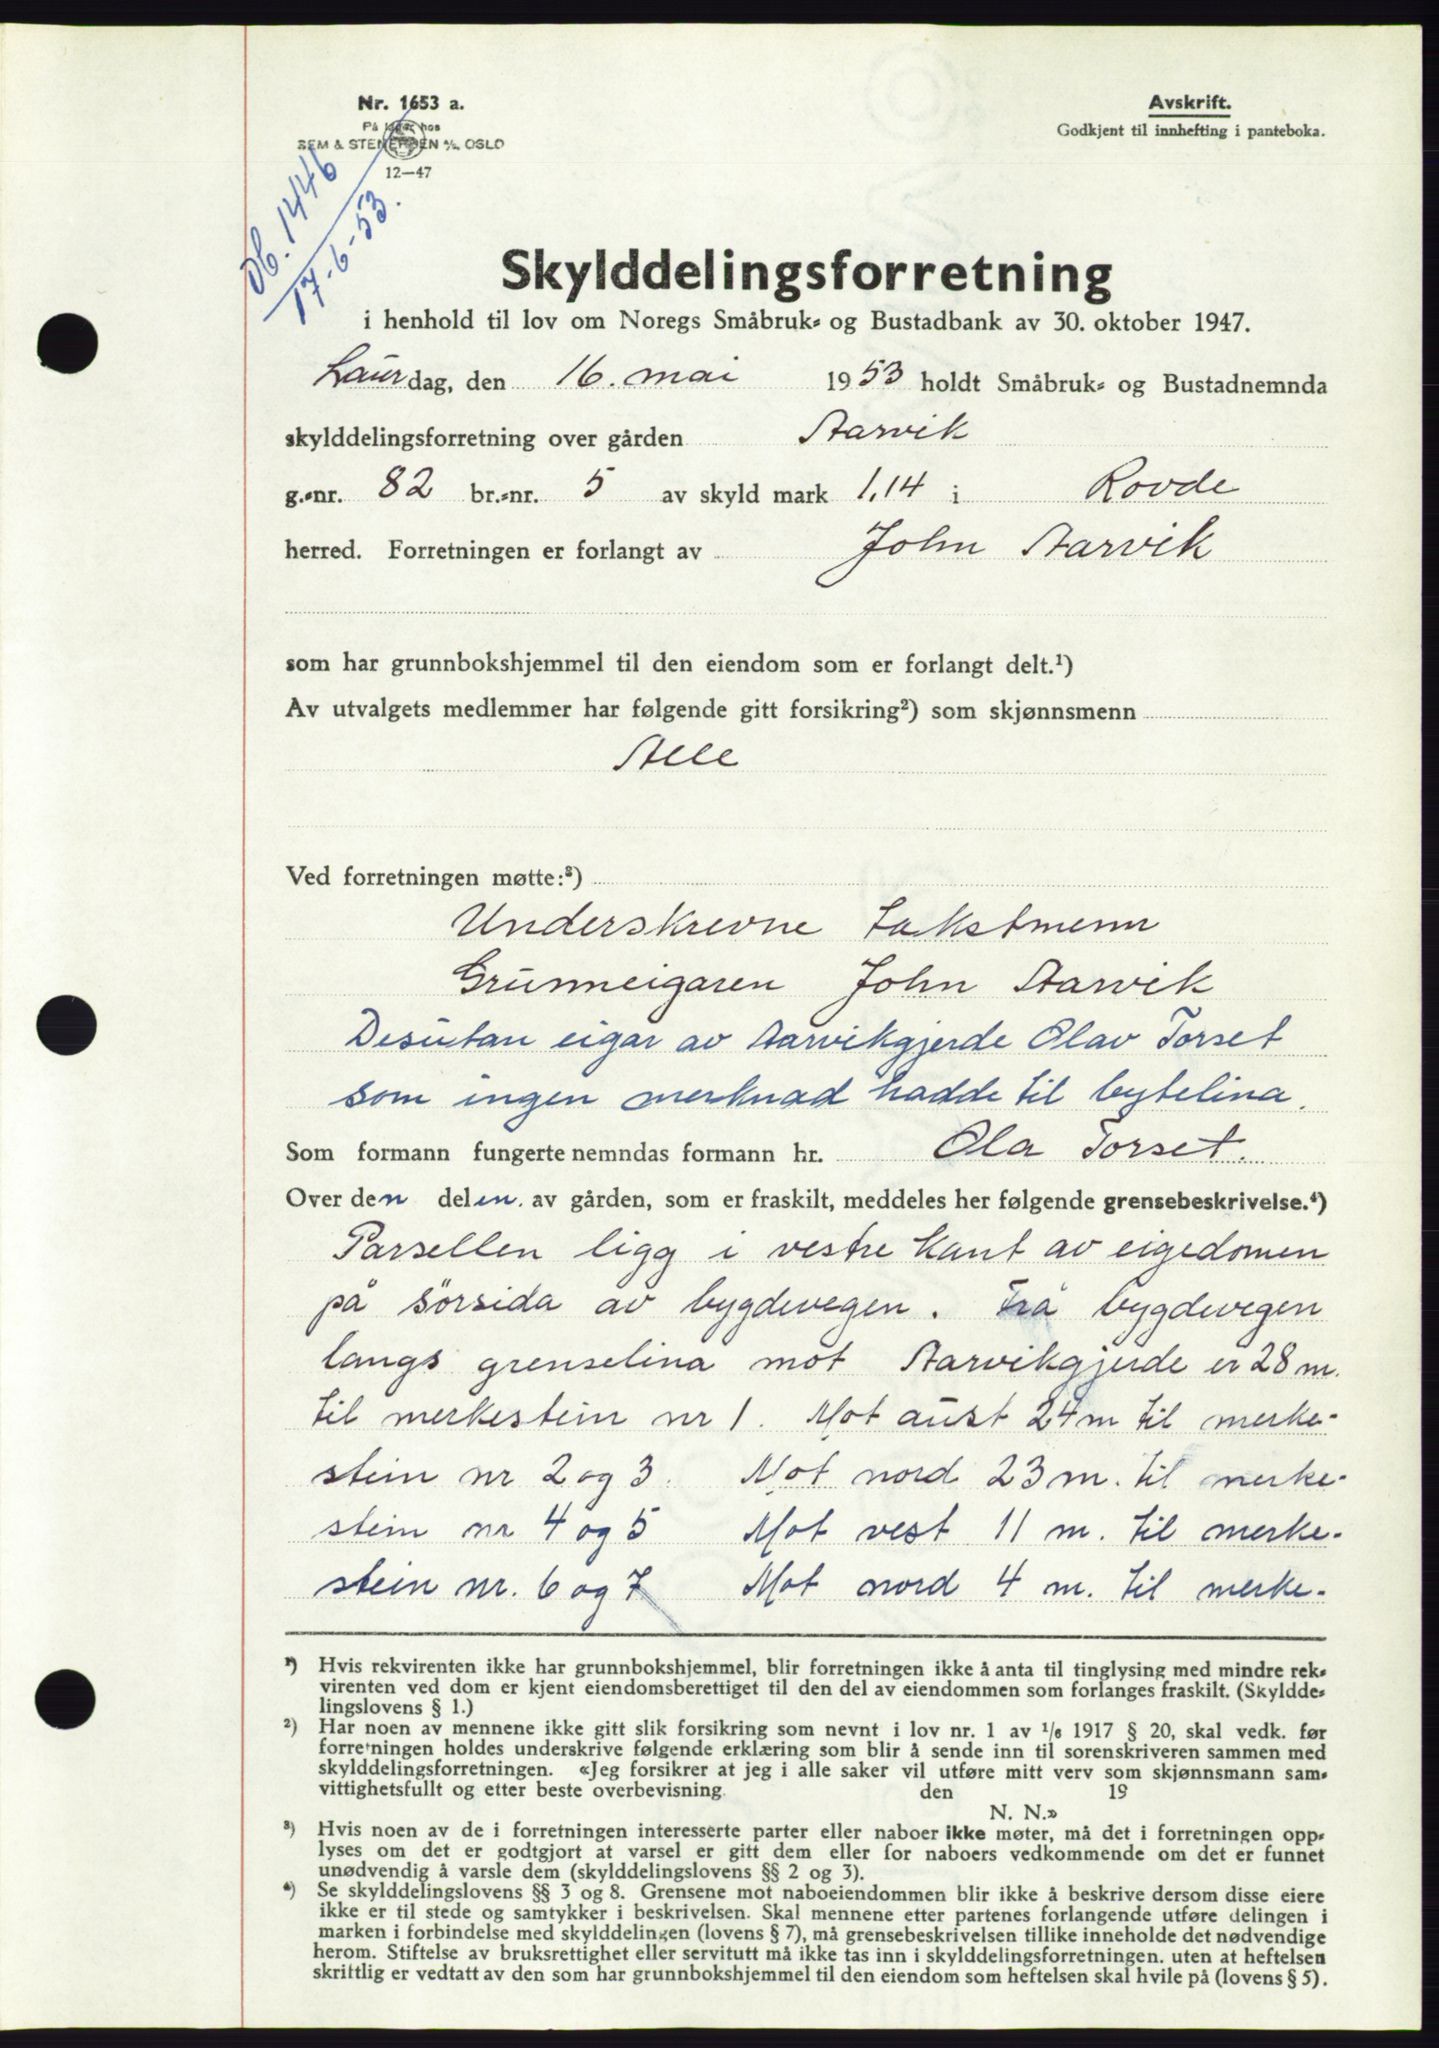 Nr. 1653 a.
På lager hos
SEM & STENERSEN A/S, OSLO
12—47
Avskrift.
Godkjent til innhefting i panteboka.
Db. 1446
17-6-53.
Skylddelingsforretning
i henhold til lov om Noregs Småbruk- og Bustadbank av 30. oktober 1947.
Laurdag, den 16. mai 1953 holdt Småbruk- og Bustadnemnda
skylddelingsforretning over gården Aarvik
g.-nr. 82 br.-nr. 5 av skyld mark 1,14 i Rovde
herred. Forretningen er forlangt av John Aarvik
som har grunnbokshjemmel til den eiendom som er forlangt delt.¹)
Av utvalgets medlemmer har følgende gitt forsikring²) som skjønnsmenn
Alle
Ved forretningen møtte:³)
Underskrevne takstmenn
Grunneigaren John Aarvik
Desutan eigar av Aarvikgjerde Olav Torset
som ingen merknad hadde til bytelina.
Som formann fungerte nemndas formann hr. Ola Torset.
Over den delen. av gården, som er fraskilt, meddeles her følgende grensebeskrivelse.⁴)
Parsellen ligg i vestre kant av eigedomen
på sörsida av bygdevegen. Frå bygdevegen
langs grenselina mot Aarvikgjerde er 28 m.
til merkestein nr 1. Mot aust 24 m til merke-
stein nr 2 og 3. Mot nord 23 m. til merke-
stein nr 4 og 5 Mot vest 11 m. til merke-
stein nr. 6 og 7 Mot nord 4 m. til merke-
¹) Hvis rekvirenten ikke har grunnbokshjemmel, blir forretningen ikke å anta til tinglysing med mindre rek-
virenten ved dom er kjent eiendomsberettiget til den del av eiendommen som forlanges fraskilt. (Skyldde-
lingslovens § 1.)
²) Har noen av mennene ikke gitt slik forsikring som nevnt i lov nr. 1 av 1/6 1917 § 20, skal vedk. før
forretningen holdes underskrive følgende erklæring som blir å sende inn til sorenskriveren sammen med
skylddelingsforretningen. «Jeg forsikrer at jeg i alle saker vil utføre mitt verv som skjønnsmann sam-
vittighetsfullt og etter beste overbevisning. den 19
N. N.»
³) Hvis noen av de i forretningen interesserte parter eller naboer ikke møter, må det i forretningen opp-
lyses om det er godtgjort at varsel er gitt dem eller for naboers vedkommende om det er funnet
unødvendig å varsle dem (skylddelingslovens §§ 2 og 3).
⁴) Se skylddelingslovens §§ 3 og 8. Grensene mot naboeiendommen blir ikke å beskrive dersom disse eiere
ikke er til stede og samtykker i beskrivelsen. Skal mennene etter partenes forlangende utføre delingen i
marken i forbindelse med skylddelingen (lovens § 7), må grensebeskrivelsen tillike inneholde det nødvendige
herom. Stiftelse av bruksrettighet eller servitutt må ikke tas inn i skylddelingsforretningen. uten at heftelsen
skriftlig er vedtatt av den som har grunnbokshjemmel til den eiendom som heftelsen skal hvile på (lovens § 5).